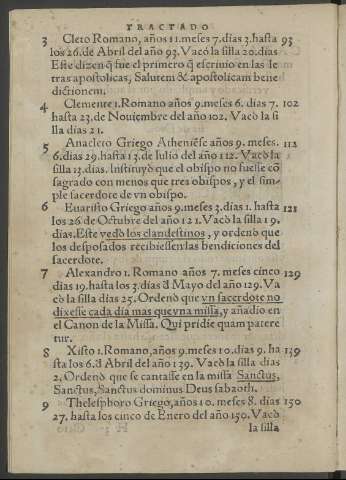 TRACTADO
3 Cleto Romano, años 11. meses 7. dias 3. hasta 93
los 26. de Abril del año 93. Vacó la silla 20. dias
Este dizen q̃ fue el primero q̃ escriuio en las le
tras apostolicas, Salutem & apostolicam bene
dictionem.
4 Clemente 1. Romano años 9. meses 6. dias 7. 102
hasta 23. de Nouiembre del año 102. Vacò la si
lla dias 21.
5 Anacleto Griego Atheniẽse años 9. meses. 112
6. dias 29. hasta 13. de Iulio del año 112. Vacò la
silla 13. dias. Instituyò que el obispo no fuesse cõ
sagrado con menos que tres obispos, y el sim-
ple sacerdote de vn obispo.
6 Euaristo Griego años 9. meses 3. dias 1. hasta 121
los 26 de Octubre del año 121. Vacò la silla 19.
dias. Este vedò los clandestinos, y ordenò que
los desposados recibiessen las bendiciones del
sacerdote.
7 Alexandro 1. Romano años 7. meses cinco 129
dias 19. hasta los 3. dias đ Mayo del año 129. Va
cò la silla dias 25. Ordenò que vn sacerdote no
dixesse cada dia mas que vna missa, y añadio en
el Canon de la Missa. Qui pridie quam patere
tur.
8 Xisto 1. Romano, años 9. meses 10. dias 9. ha 139
sta los 6. đ Abril del año 139. Vacò la silla dias
2. Ordenò que se cantasse en la missa Sanctus,
Sanctus, Sanctus dominus Deus sabaoth.
9 Thelesphoro Griego, años 10. meses 8. dias 150
27. hasta los cinco de Enero del año 150. Vacò
la silla